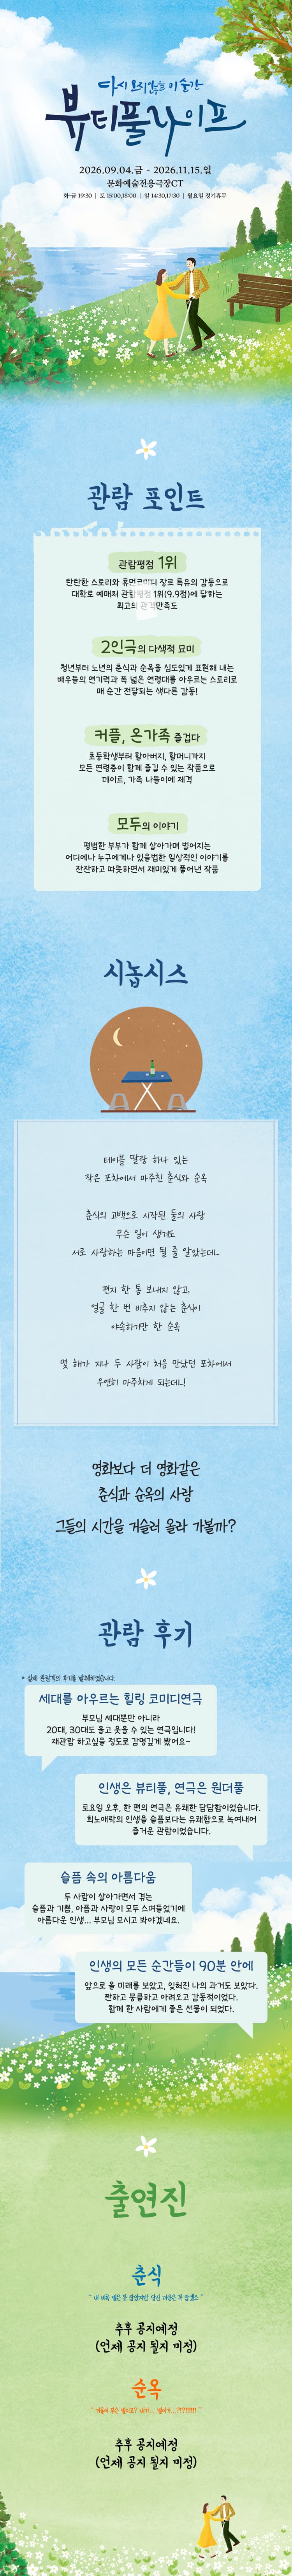 다시 오지 않을 이 순간
뷰티풀라이프
2026.09.04.금 - 2026.11.15.일
문화예술전용극장CT
화-금 19:30 | 토 15:00,18:00 | 일 14:30,17:30 | 월요일 정기휴무
관람 포인트
관람평점 1위
탄탄한 스토리와 휴먼코미디 장르 특유의 감동으로
대학로 예매처 관람평점 1위(9.9점)에 달하는
최고의 관객만족도
2인극의 다색적 묘미
청년부터 노년의 춘식과 순옥을 심도있게 표현해 내는
배우들의 연기력과 폭 넓은 연령대를 아우르는 스토리로
매 순간 전달되는 색다른 감동!
커플, 온가족 즐겁다
초등학생부터 할아버지, 할머니까지
모든 연령층이 함께 즐길 수 있는 작품으로
데이트, 가족 나들이에 제격
모두의 이야기
평범한 부부가 함께 살아가며 벌어지는
어디에나 누구에게나 있을법한 일상적인 이야기를
잔잔하고 따뜻하면서 재미있게 풀어낸 작품
시놉시스
테이블 딸랑 하나 있는
작은 포차에서 마주친 춘식와 순옥
춘식의 고백으로 시작된 둘의 사랑
무슨 일이 생겨도
서로 사랑하는 마음이면 될 줄 알았는데...
편지 한 통 보내지 않고,
얼굴 한 번 비추지 않는 춘식이
야속하기만 한 순옥
몇 해가 지나 두 사람이 처음 만났던 포차에서
우연히 마주치게 되는데...!
영화보다 더 영화같은
춘식과 순옥의 사랑
그들의 시간을 거슬러 올라 가볼까?
관람 후기
* 실제 관람객의 후기를 발췌하였습니다.
세대를 아우르는 힐링 코미디연극
부모님 세대뿐만 아니라
20대, 30대도 울고 웃을 수 있는 연극입니다!
재관람 하고싶을 정도로 감명깊게 봤어요~
인생은 뷰티풀, 연극은 원더풀
토요일 오후, 한 편의 연극은 유쾌한 담담함이었습니다.
희노애락의 인생을 슬픔보다는 유쾌함으로 녹여내어
즐거운 관람이었습니다.
슬픔 속의 아름다움
두 사람이 살아가면서 겪는
슬픔과 기쁨, 아픔과 사랑이 모두 스며들었기에
아름다운 인생... 부모님 모시고 봐야겠네요.
인생의 모든 순간들이 90분 안에
앞으로 올 미래를 보았고, 잊혀진 나의 과거도 보았다.
짠하고 뭉클하고 아려오고 감동적이었다.
함께 한 사람에게 좋은 선물이 되었다.
출연진
춘식
" 내 비록 별은 못 잡았지만 당신 마음은 꼭 잡겠소 "
추후 공지예정
(언제 공지 될지 미정)
순옥
추후 공지예정
(언제 공지 될지 미정)